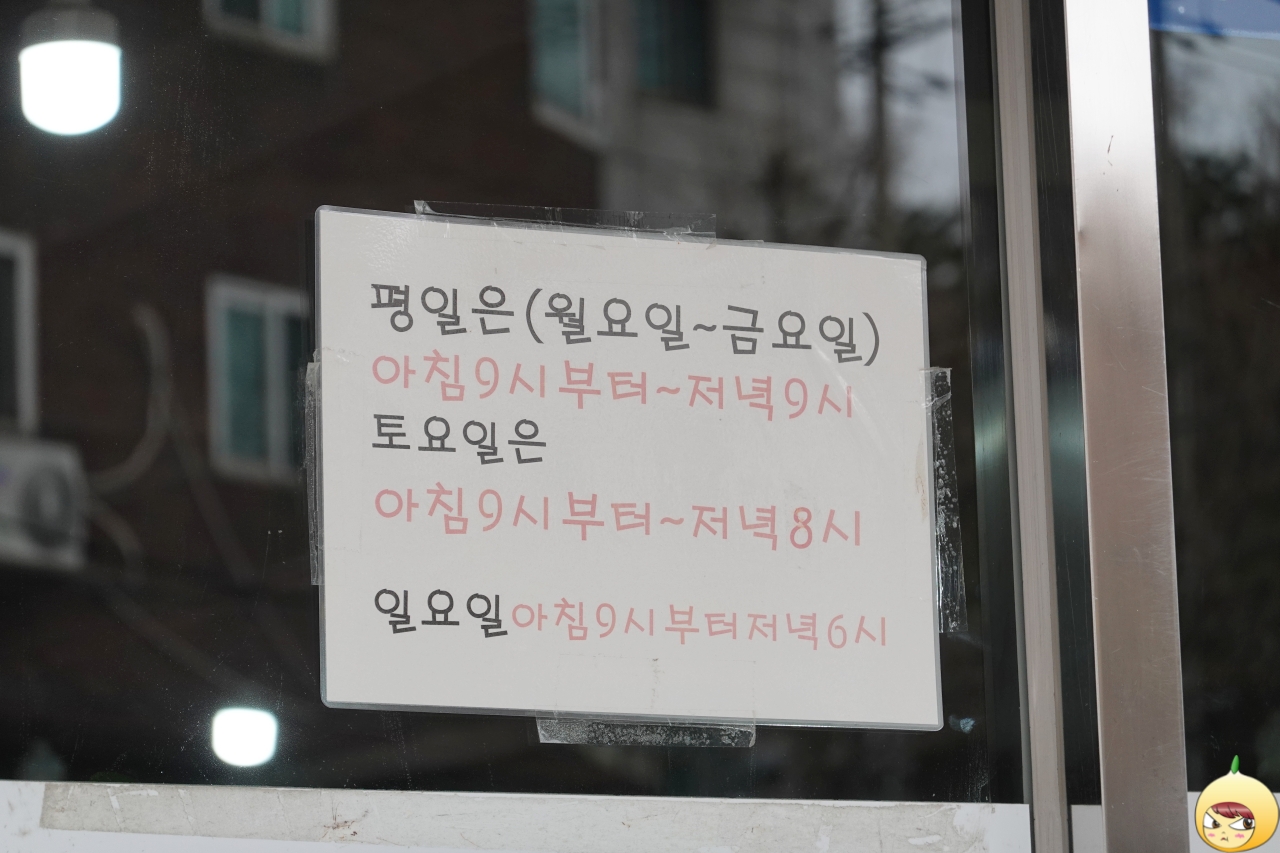 평일은(월요일~금요일)
아침9시부터~저녁9시
토요일은
아침9시부터~저녁8시
일요일아침9시부터저녁6시